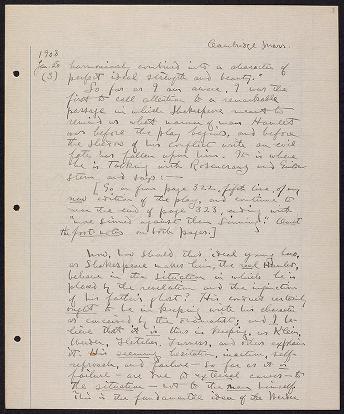 Cambridge, Mass.
1908
Jan. 28
(3)
harmoniously combined into a character of
perfect ideal strength and beauty."
So far as I am aware, I was the
first to call attention to a remarkable
passage in which Shakespeare meant to
remind us what manner of man Hamlet
was before the play begins, and before
the shadow of his conflict with an evil
fate has fallen upon him. It is where
he is talking with Rosencranz and Guilden-
stern and says:—
[Go on from page 322, fifth line, of my
new edition of the play, and continue to
near the end of page 323, ending with
"more sinned against than sinning." Omit
the foot-notes on both pages.]
Now, how should this ideal young hero,
as Shakespeare makes him, the real Hamlet,
behave in the situation in which he is
placed by the revelation and the injunction
of his father's ghost? His conduct certainly
ought to be in keeping with his character
as conceived by the dramatist, and I be-
lieve that it is thus in keeping, as Klein,
Werder, Fletcher, Furness, and others explain
it. His seeming hesitation, inaction, self-
reproach, and failure—so far as it is
failure—are due to external causes—to
the situation—not to the man himself.
This is the fundamental idea of the Werder